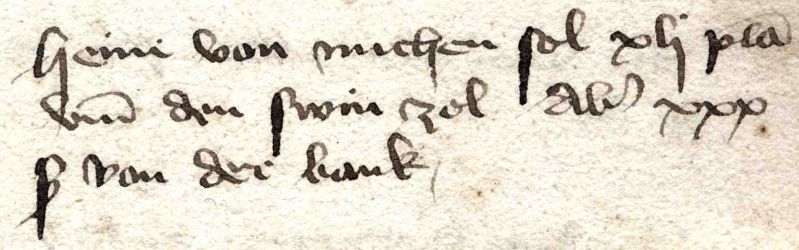 heini von michen sol xlj pla
vm̄ den swin zol Ab' xxx
ß von der bank